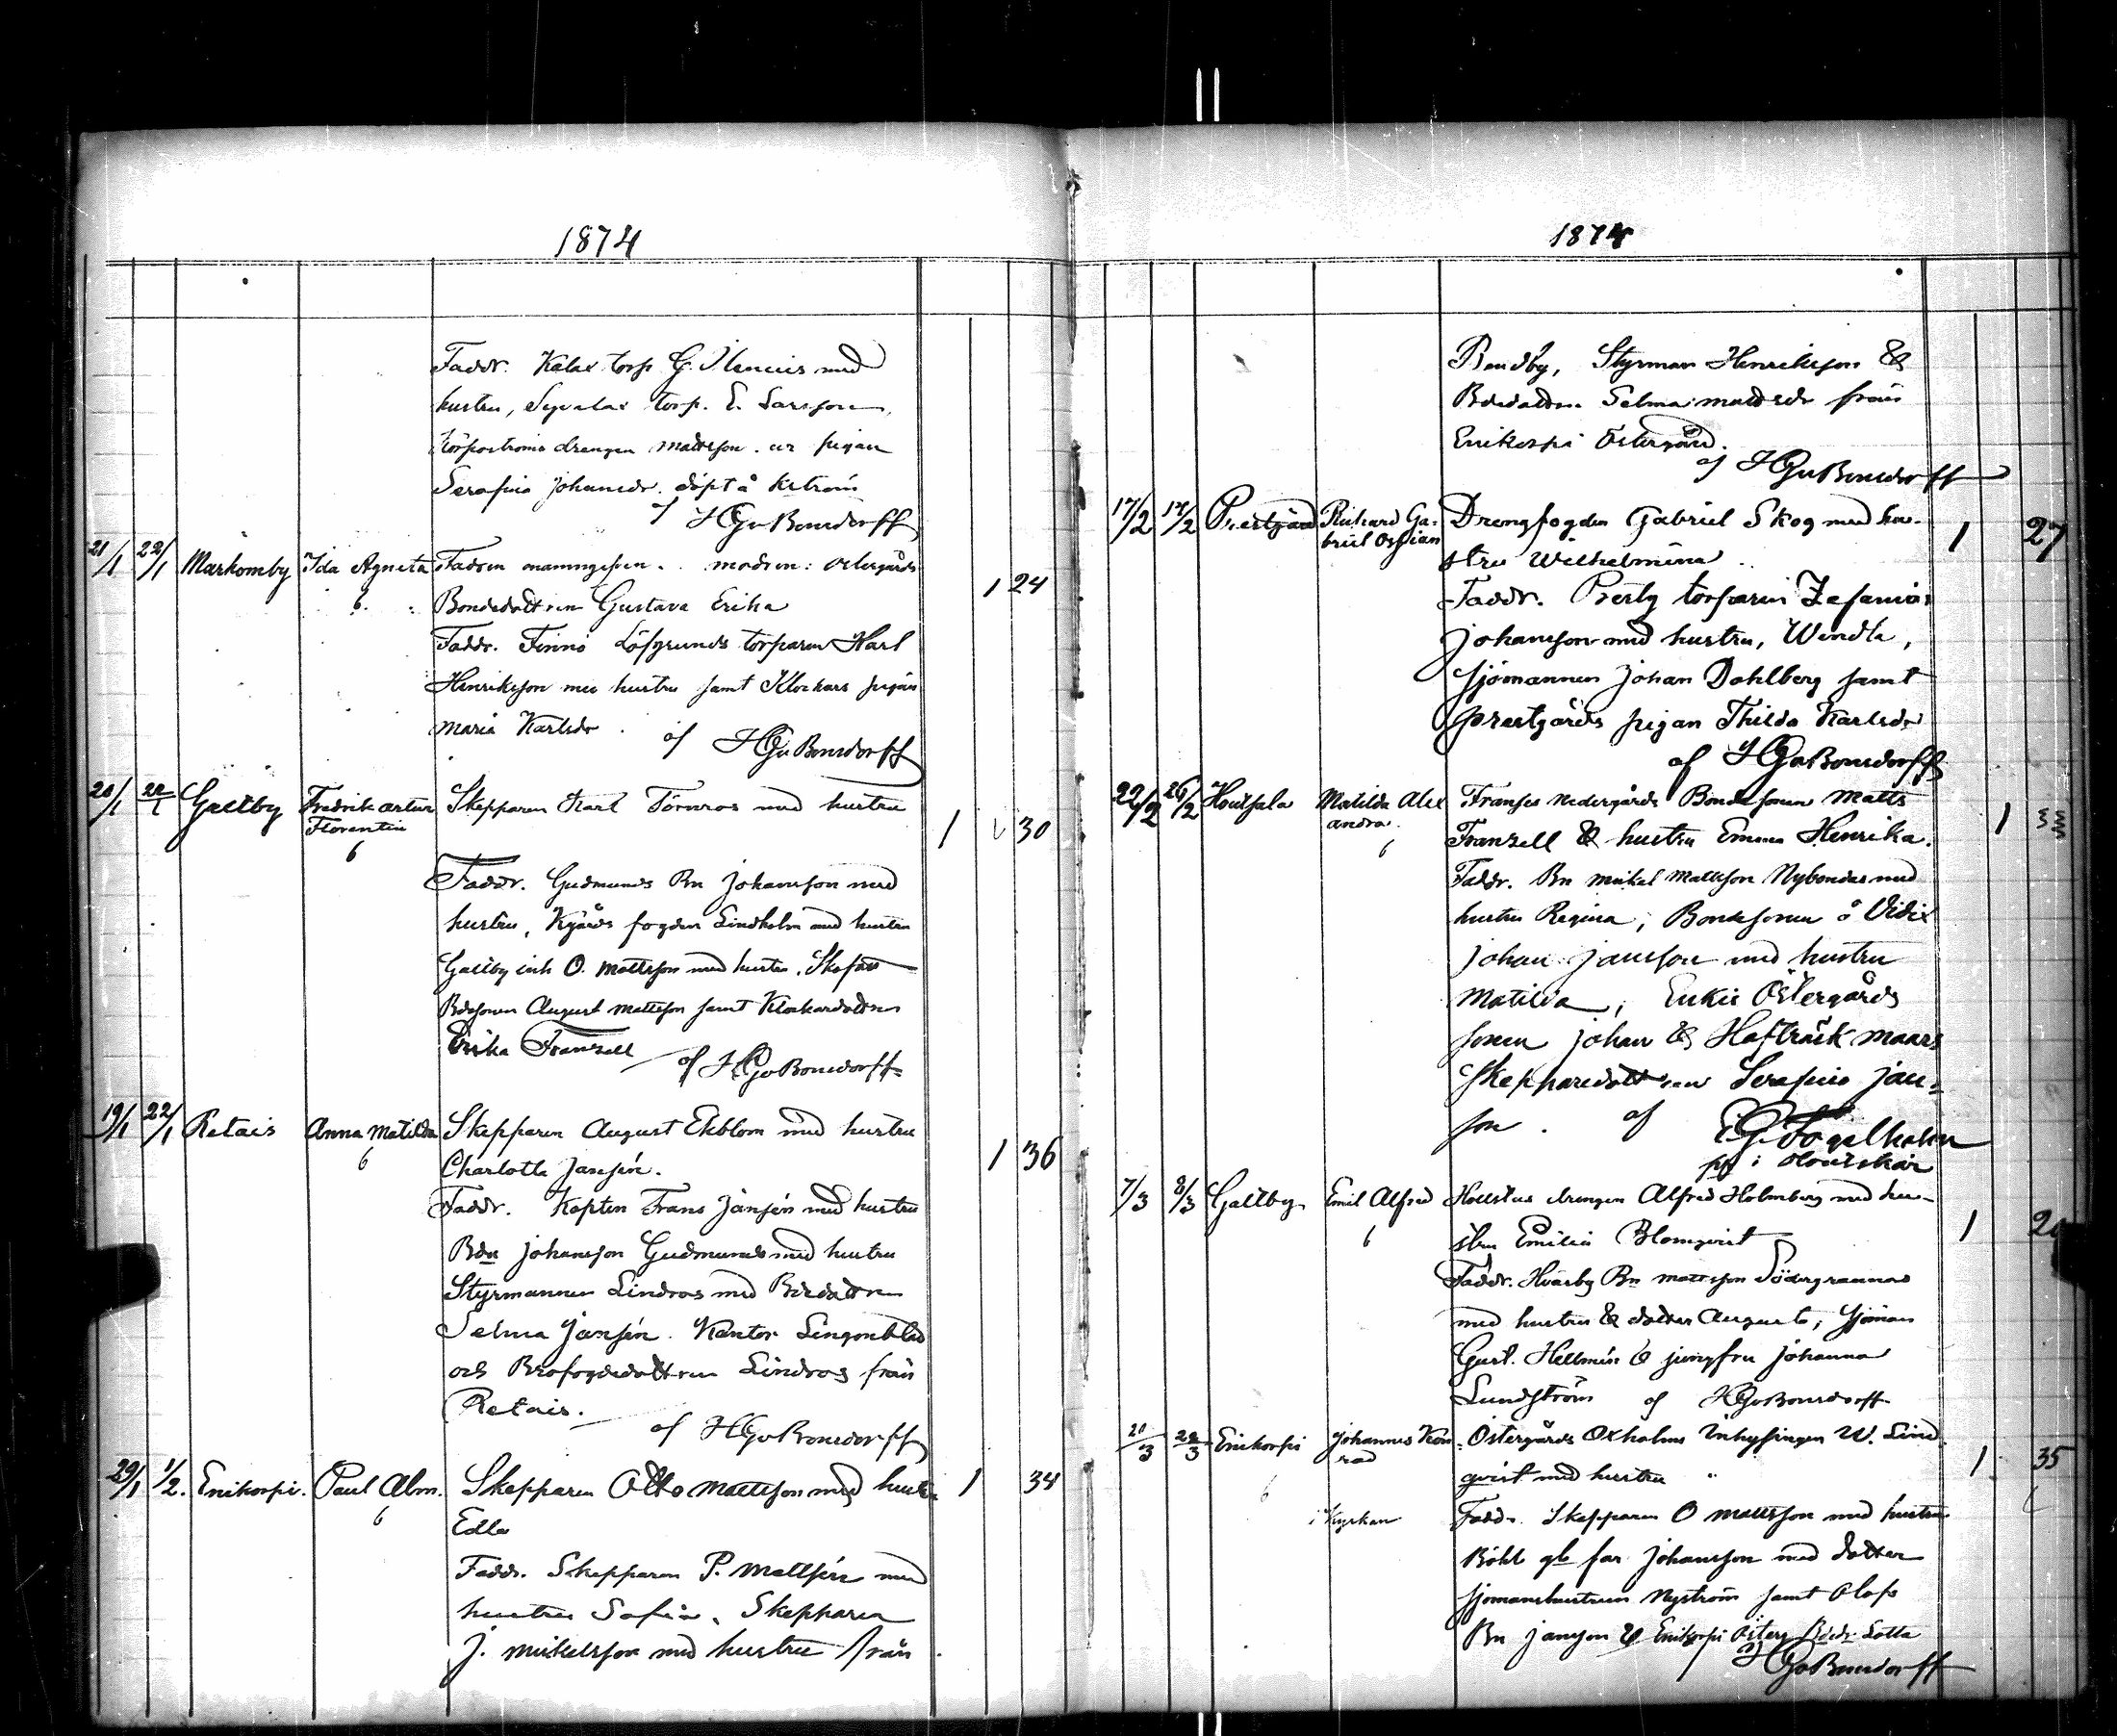 1874
Faddr. Kalax torp. G. Ilenius med
hustru, torp. E. Larsson,
drengen Mattsson pigan
Serafina Johansdr. döpt å
af HGvBonsdorff
21/1 22/1 Markomby Ida Agneta Fadren onamngifven. modren: Östergårds 1 24
6 Bondedottren Gustava Erika
Faddr. Finnö Löfgrunds torparen Karl
Henriksson med hustru samt Klockars pigan
Maria Karlsdr af HGvBonsdorff
20/1 22/1 Galtby Fredrik Artur Skepparen Karl Törnros med hustru
Florentin 1 30
6
Faddr. Gudmunds Bn Johansson med
hustru, Kgårds fogden Lindholm med hustru
Galtby inh O. Mattsson med hustru,
Bdesonen August Mattsson samt Klockardottren
Erika Franzell af HGvBonsdorff
19/1 22/1 Retais Anna Matilda Skepparen August Ekblom med hustru
6 Charlotta Jansén. 1 36
Faddr. Kapten Frans Jansén med hustru
Bdn Johansson Gudmunds med hustru
Styrmannen Lindros med Bdedottren
Selma Jansén. Kantor Lingonblad
och Brofogdedottren Lindros från
Retais. af HGvBonsdorff
29/1 1/2. Enikorpi. Paul Alm. Skepparen Otto Mattsson med hustru 1 34
6 Edla
Faddr. Skepparen P. Mattsén med
hustru Sofia, Skepparen
J. Mickelsson med hustru från
1874
Bondby, Styrman Henriksson &
Bdedottren Selma Mattsdr från
Enikorpi Östergård.
af HGvBonsdorff
17/2 17/2 Prestgård Rickard Ga- Drengfogden Gabriel Skog med hu-
briel Ossian 1 27
stru Wilhelmina
Faddr. Presty torparen Zefanias
Johansson med hustru, Wendla,
sjömannen Johan Dahlberg samt
prestgårds pigan Thilda Karlsdr
af HGvBonsdorff
22/2 26/2 Houtsala Matilda Alex Fransas Nedergårds Bondesonen Matts
andra. 1 33
6 Franzell & hustru Emma Henrika.
Faddr. Bn Mickel Mattsson Nybondas med
hustru Regina; Bondesonen å
Johan Jansson med hustru
Matilda; Östergårds
sonen Johan & Hafträsk
Skepparedottren Serafina Jan-
son. af Fogelholm
i Houtskär
7/3 8/3 Galtby Emil Alfred drengen Alfred Holmberg med hu-
6 stru Emilia Blomqvist 1
Faddr. Hvarby Bn Mattsson Södergrannas
med hustru & dotter Augusta; Sjöman
Gust. Hellmén & jungfru Johanna
Lundström af HGvBonsdorff
20/3 22/3 Enikorpi Johannes Kon- Östergårds Oxholms Inhysingen W. Lind-
rad 1 35
6 qvist med hustru "
i Kyrkan Faddr. Skepparen O Mattsson med hustru
Böhle gb far Johansson med dotter
sjömanshustrun Nyström samt Olofs
Bn Janson & Enikorpi Österg. Bdedr Lotta
HGvBonsdorff